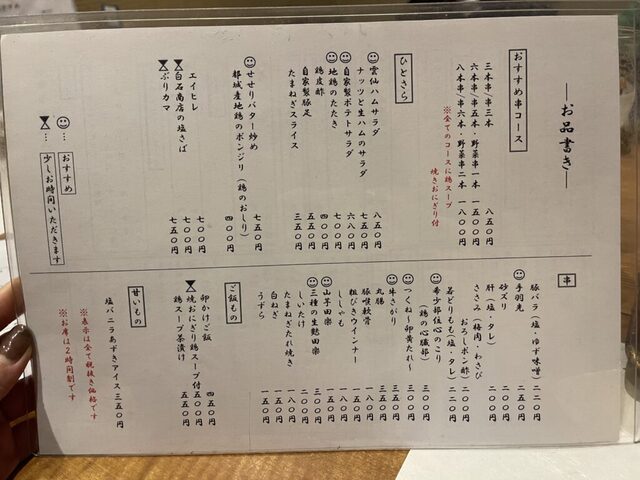 ―お品書き―
おすすめ串コース
三本串/串三本 八五〇円
六本串/串五本・野菜串一本 一五〇〇円
八本串/串六本・野菜串二本 一八〇〇円
※全てのコースに鶏スープ
焼きおにぎり付
ひとさら
雲仙ハムサラダ 八五〇円
ナッツと生ハムのサラダ 七五〇円
自家製ポテトサラダ 六八〇円
地鶏のたたき 七〇〇円
鶏皮酢 四〇〇円
自家製豚足 五五〇円
たまねぎスライス 三五〇円
せせりバター炒め 七五〇円
都城産地鶏のボンジリ(鶏のおしり) 四〇〇円
エイヒレ 七〇〇円
白石商店の塩さば 七〇〇円
ぶりカマ 七五〇円
… おすすめ
… 少しお時間いただきます
串
豚バラ(塩・ゆず味噌) 二二〇円
手羽先 二五〇円
砂ズリ 二〇〇円
肝(塩・タレ) 二〇〇円
ささみ(梅肉・わさび
おろしポン酢) 二二〇円
若どりもも(塩・タレ) 二二〇円
希少部位心のこり
(鶏の心臓部) 三〇〇円
つくね〜卵黄たれ〜 三〇〇円
牛さがり 三五〇円
丸腸 三五〇円
豚喉軟骨 一八〇円
粗びきウインナー
ししゃも
山芋田楽
三種の生麩田楽 三〇〇円
しいたけ
たまねぎたれ焼き
白ねぎ
うずら 一五〇円
ご飯もの
卵かけご飯 四五〇円
焼おにぎり鶏スープ付 五〇〇円
鶏スープ茶漬け 五五〇円
甘いもの
塩バニラあずきアイス 三五〇円
※表示は全て税抜き価格です
※お席は2時間制です